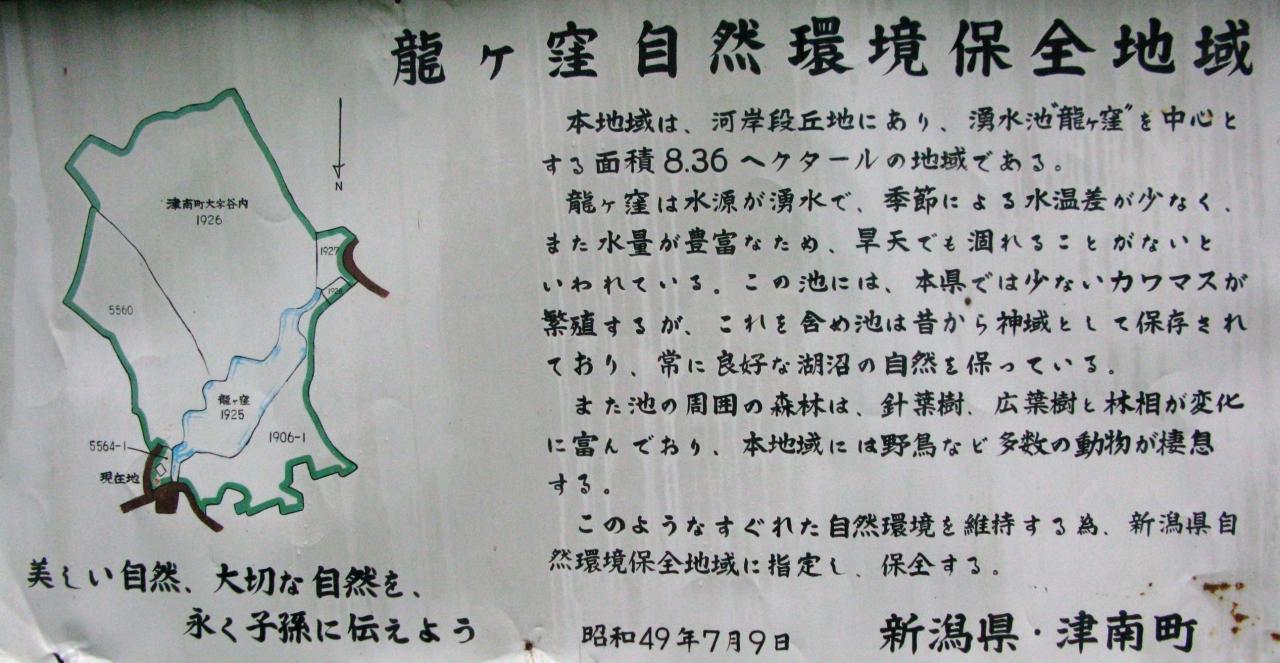 龍ヶ窪自然環境保全地域
本地域は、河岸段丘地にあり、湧水池"龍ヶ窪"を中心と
する面積8.36ヘクタールの地域である。
龍ヶ窪は水源が湧水で、季節による水温差が少なく、
また水量が豊富なため、旱天でも涸れることがないと
いわれている。この池には、本県では少ないカワマスが
繁殖するが、これを含め池は昔から神域として保存され
ており、常に良好な湖沼の自然を保っている。
また池の周囲の森林は、針葉樹、広葉樹と林相が変化
に富んでおり、本地域には野鳥など多数の動物が棲息
する。
このようなすぐれた自然環境を維持する為、新潟県自
然環境保全地域に指定し、保全する。
昭和49年7月9日
新潟県・津南町
N
津南町大字谷内
1926
1927
1928
5560
龍ヶ窪
1925
1906-1
5564-1
現在地
美しい自然、大切な自然を、
永く子孫に伝えよう